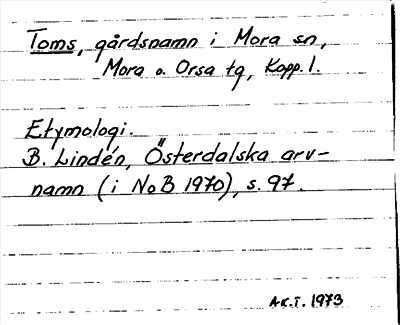 Toms, gårdsnamn i Mora sn,
Mora o. Orsa tg, Kopp. l.
Etymologi.
B. Lindén, Österdalska arv-
namn (i NoB 1970), s. 97.
A.K.T. 1973